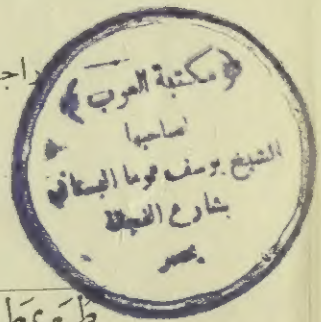 راجـ
﴿مكتبة العرب﴾
لصاحبها
الشيخ يوسف توما البستاني
بشارع الفجالة
بمصر